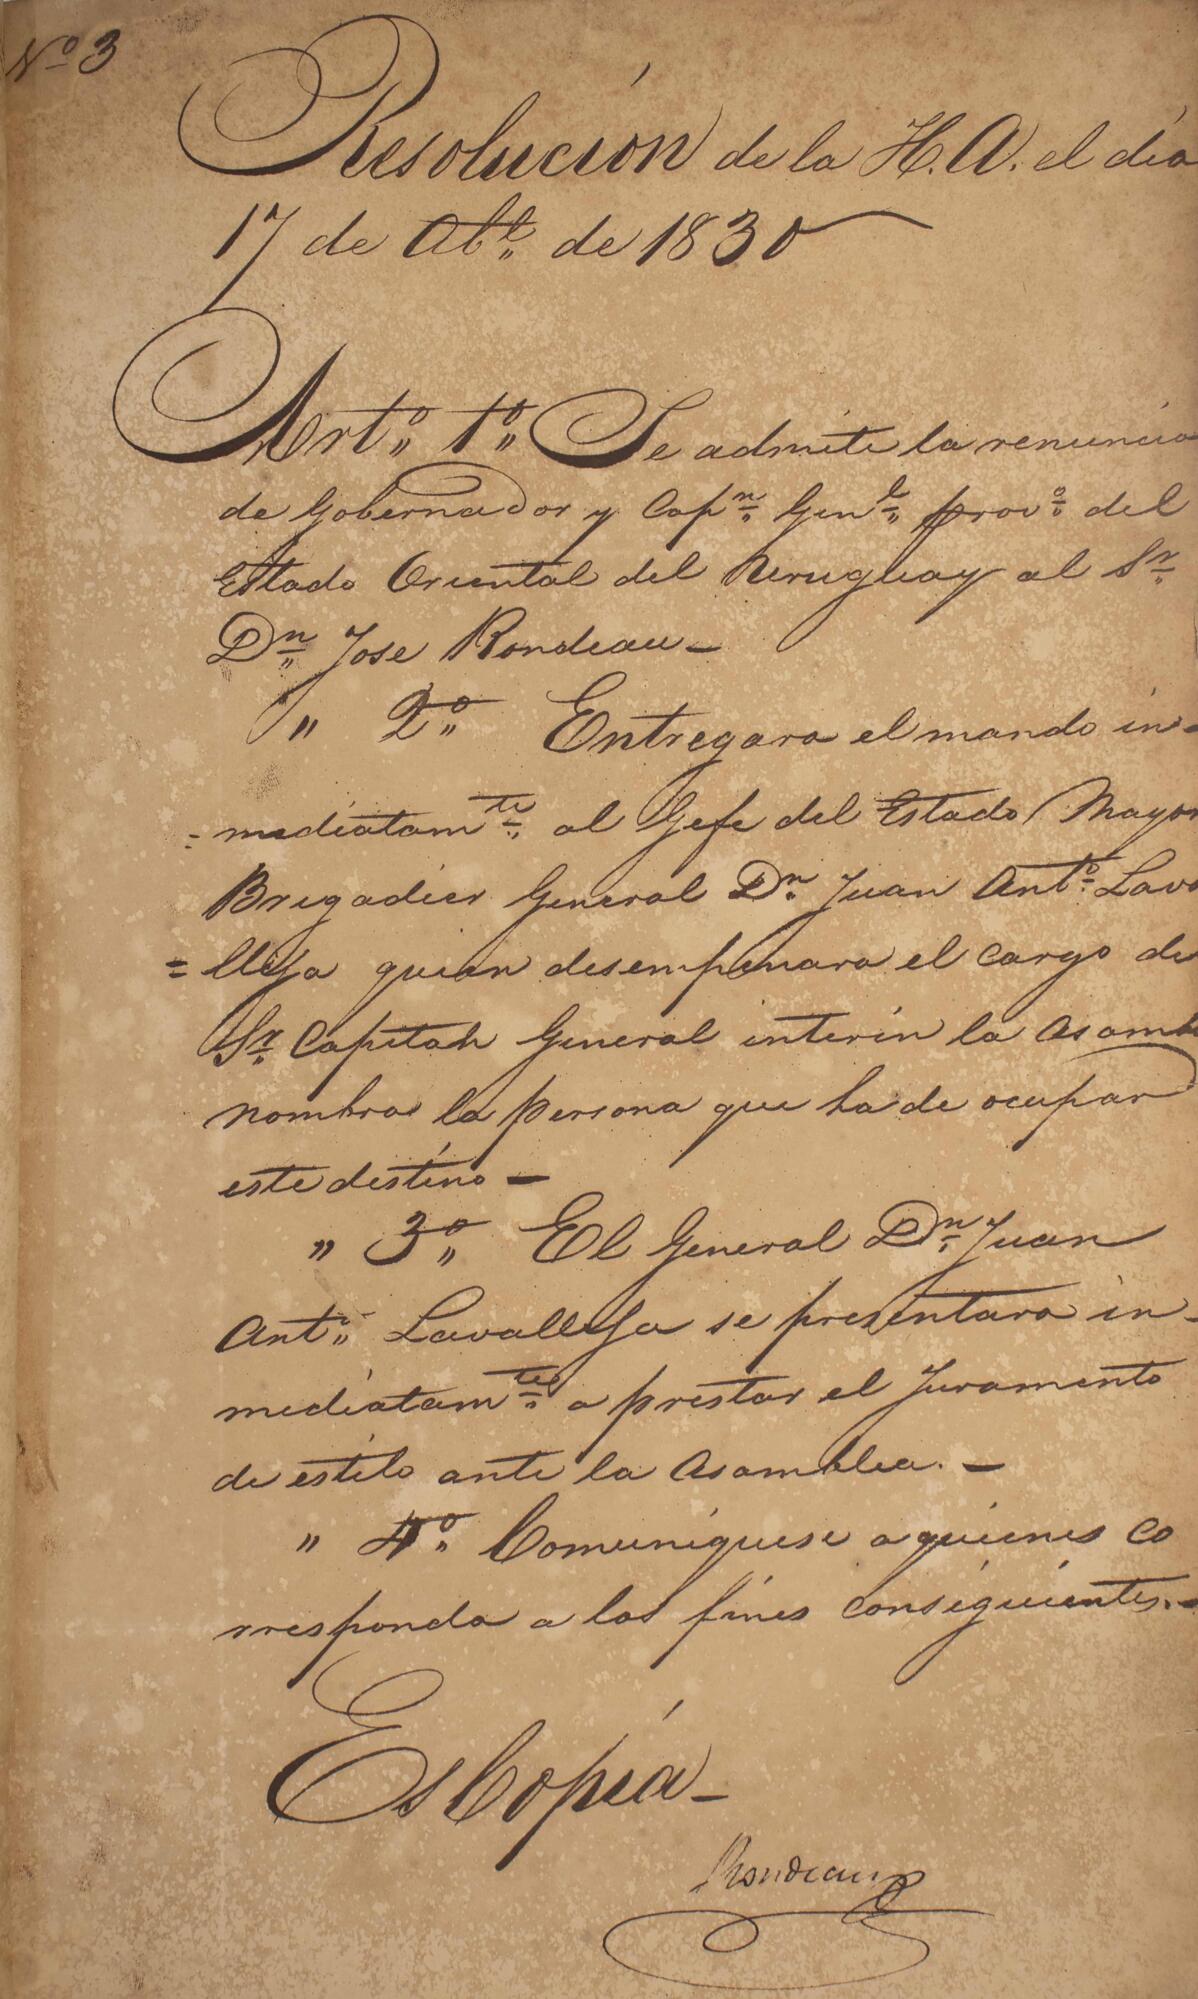 Nº 3
Resolución de la H. A. el día
17 de Abl. de 1830
Artº 1º Se admite la renuncia
de Gobernador y Capn Genl provº del
Estado Oriental del Uruguay al Sr
Dn Jose Rondeau –
" 2º Entregara el mando in-
=mediatamte al Gefe del Estado Mayor
Brigadier General Dn Juan Antº Lava
=lleja quien desempenara el cargo de
Sr Capitan General interin la Asamb
nombra la persona que ha de ocupar
este destino –
" 3º El General Dn Juan
Antº Lavalleja se presentara in-
mediatamte a prestar el Juramento
de estilo ante la Asamblea. –
" 4º Comuniquese a quienes co
rresponda a los fines consiguientes. –
Es Copia –
Rondeau